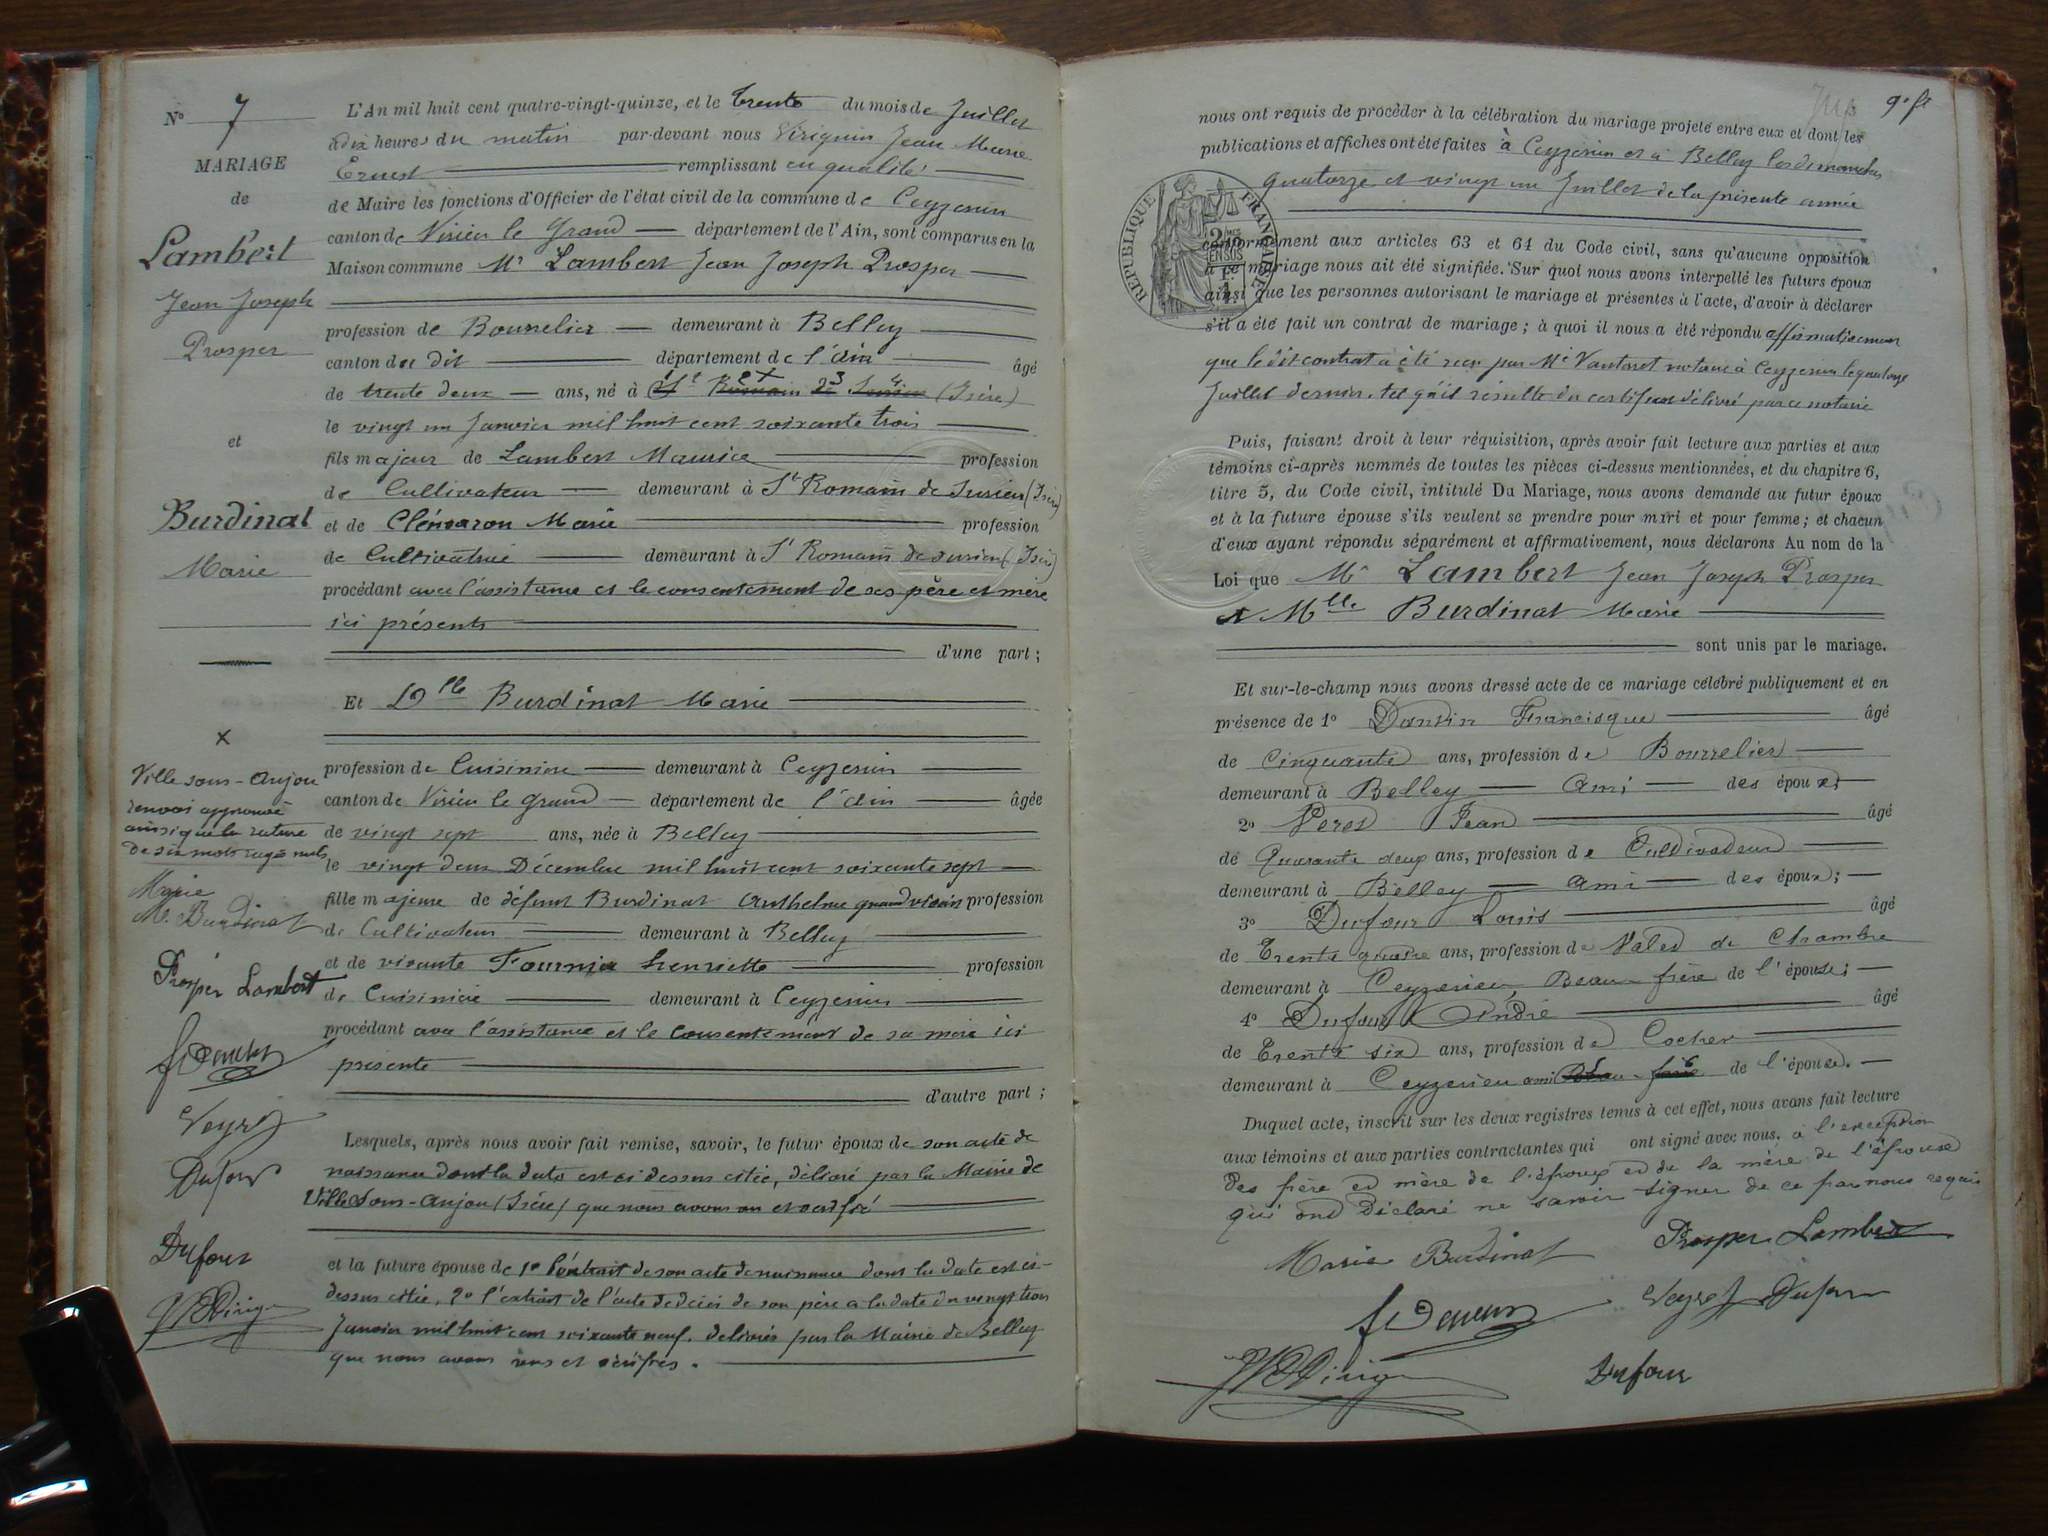 N° 7
MARIAGE
de
Lambert
Jean Joseph
Prosper
et
Burdinat
Marie
x
Ville sous-Anjou
renvoi approuvé
ainsi que la rature
de six mots rayés nuls
Marie
M. Burdinat
Prosper Lambert
Veyret
Dufour
Dufour
L'An mil huit cent quatre-vingt-quinze, et le trente du mois de Juillet
à dix heures du matin par-devant nous Viriguin Jean Marie
Ernest remplissant en qualité
de Maire les fonctions d'Officier de l'état civil de la commune de Ceyzerieu
canton de Virieu le Grand département de l'Ain, sont comparus en la
Maison commune Mr Lambert Jean Joseph Prosper
profession de Bourrelier demeurant à Belley
canton du dit département de l'Ain âgé
de trente deux ans, né à St Romain de Surieu (Isère)
le vingt un Janvier mil huit cent soixante trois
fils majeur de Lambert Maurice profession
de Cultivateur demeurant à St Romain de Surieu (Isère)
et de Clémaron Marie profession
de Cultivatrice demeurant à St Romain de Surieu (Isère)
procédant avec l'assistance et le consentement de ses père et mère
ici présents
d'une part ;
Et Dlle Burdinat Marie
profession de Cuisinière demeurant à Ceyzerieu
canton de Virieu le Grand département de l'Ain âgée
de vingt sept ans, née à Belley
le vingt deux Décembre mil huit cent soixante sept
fille majeure de défunt Burdinat Anthelme quand vivait profession
de Cultivateur demeurant à Belley
et de vivante Fournier Henriette profession
de Cuisinière demeurant à Ceyzerieu
procédant avec l'assistance et le consentement de sa mère ici
présente
d'autre part ;
Lesquels, après nous avoir fait remise, savoir, le futur époux de son acte de
naissance dont la date est ci dessus citée, délivré par la Mairie de
Ville Sous-Anjou (Isère) que nous avons vu et vérifié
et la future épouse de 1° l'extrait de son acte de naissance dont la date est ci-
dessus citée, 2° l'extrait de l'acte de décès de son père a la date du vingt trois
Janvier mil huit cent soixante neuf, délivrés par la Mairie de Belley
que nous avons vus et vérifiés.
9° ft
nous ont requis de procéder à la célébration du mariage projeté entre eux et dont les
publications et affiches ont été faites à Ceyzerieu et à Belley les dimanches
quatorze et vingt un Juillet de la présente année
RÉPUBLIQUE FRANÇAISE
2 DMES EN SUS
1 F.
conformément aux articles 63 et 64 du Code civil, sans qu'aucune opposition
à ce mariage nous ait été signifiée. Sur quoi nous avons interpellé les futurs époux
ainsi que les personnes autorisant le mariage et présentes à l'acte, d'avoir à déclarer
s'il a été fait un contrat de mariage ; à quoi il nous a été répondu affirmativement
que le dit contrat a été reçu par Me notaire à Ceyzerieu le quatorze
Juillet dernier, tel qu'il résulte du certificat délivré par ce notaire
Puis, faisant droit à leur réquisition, après avoir fait lecture aux parties et aux
témoins ci-après nommés de toutes les pièces ci-dessus mentionnées, et du chapitre 6,
titre 5, du Code civil, intitulé Du Mariage, nous avons demandé au futur époux
et à la future épouse s'ils veulent se prendre pour mari et pour femme ; et chacun
d'eux ayant répondu séparément et affirmativement, nous déclarons Au nom de la
Loi que Mr Lambert Jean Joseph Prosper
et Mlle Burdinat Marie
sont unis par le mariage.
Et sur-le-champ nous avons dressé acte de ce mariage célébré publiquement et en
présence de 1° Francisque âgé
de Cinquante ans, profession de Bourrelier
demeurant à Belley Ami des époux
2° Jean âgé
de Quarante deux ans, profession de Cultivateur
demeurant à Belley ami des époux ;
3° Dufour Louis âgé
de Trente quatre ans, profession de Valet de Chambre
demeurant à Ceyzerieu Beau-frère de l'épouse ;
4° Dufour André âgé
de Trente six ans, profession de Cocher
demeurant à Ceyzerieu ami Beau-frère de l'épouse.
Duquel acte, inscrit sur les deux registres tenus à cet effet, nous avons fait lecture
aux témoins et aux parties contractantes qui ont signé avec nous, à l'exception
des père et mère de l'époux et de la mère de l'épouse
qui ont déclaré ne savoir signer de ce par nous requis
Marie Burdinat Prosper Lambert
Veyret Dufour
Dufour